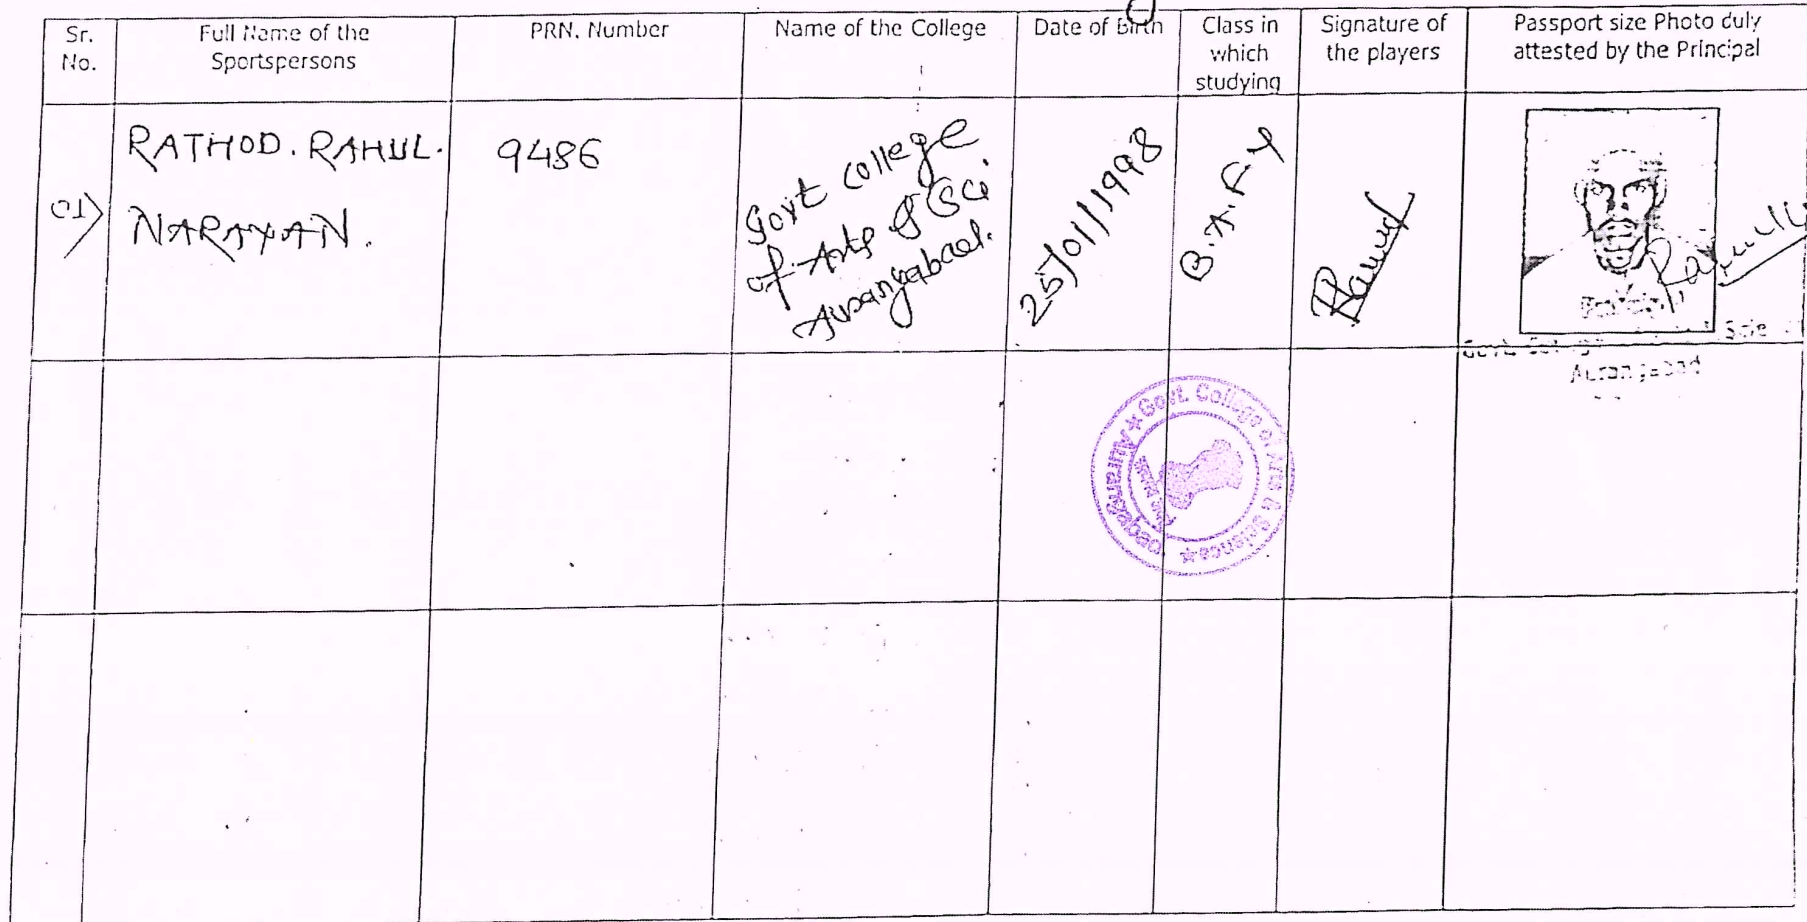 Sr. No.
Full Name of the Sportspersons
PRN. Number
Name of the College
Date of Birth
Class in which studying
Signature of the players
Passport size Photo duly attested by the Principal
01)
RATHOD. RAHUL.
NARAYAN.
9486
Govt college
of Arts & Sci
Aurangabad.
25/01/1998
B.A.F.Y
Aurangabad
Govt. College of Arts & Science ★ Aurangabad ★